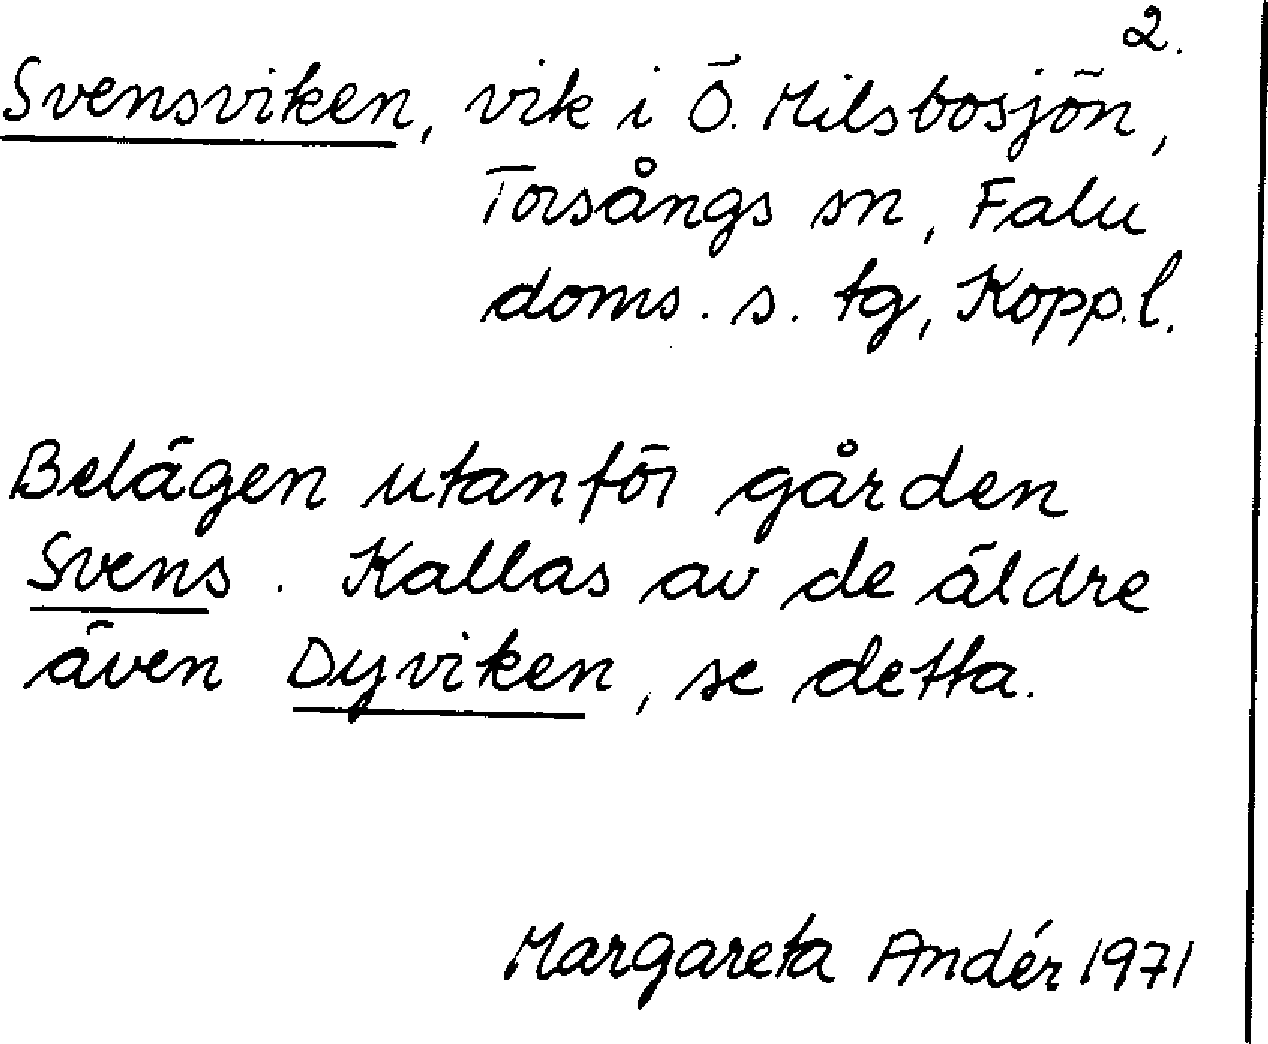 2.
Svensviken, vik i Ö. Milsbosjön,
Torsångs sn, Falu
doms. s. tg, Kopp.l.
Belägen utanför gården
Svens. Kallas av de äldre
även Dyviken, se detta.
Margareta Andér 1971